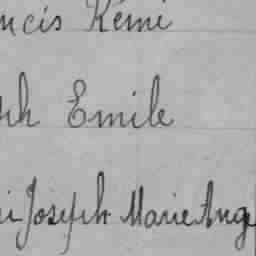 ncis Rémi
ph Emile
ri Joseph Marie Ang